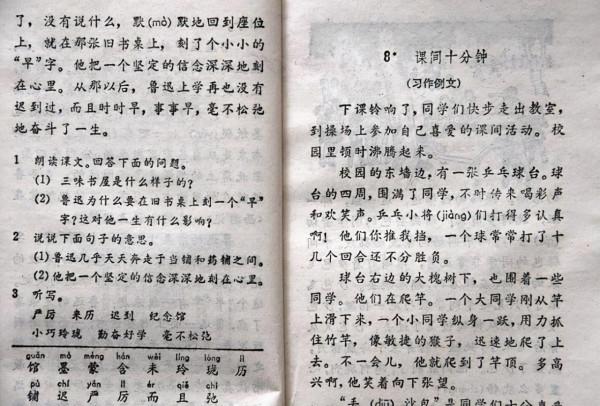 了，没有说什么，默(mò)默地回到座位
上，就在那张旧书桌上，刻了个小小的
“早”字。他把一个坚定的信念深深地刻
在心里。从那以后，鲁迅上学再也没有
迟到过，而且时时早，事事早，毫不松弛
地奋斗了一生。
1 朗读课文。回答下面的问题。
(1) 三味书屋是什么样子的？
(2) 鲁迅为什么要在旧书桌上刻一个“早”
字？这对他一生有什么影响？
2 说说下面句子的意思。
(1) 鲁迅几乎天天奔走于当铺和药铺之间。
(2) 他把一个坚定的信念深深地刻在心里。
3 听写。
严厉 来历 迟到 纪念馆
小巧玲珑 勤奋好学 毫不松弛
guǎn mò méng hán wèi líng lóng lì
馆 墨 蒙 含 未 玲 珑 历
pù chí yán lì ér qiě chí
铺 迟 严 厉 而 且 弛
8* 课间十分钟
(习作例文)
下课铃响了，同学们快步走出教室，
到操场上参加自己喜爱的课间活动。校
园里顿时沸腾起来。
校园的东墙边，有一张乒乓球台。球
台的四周，围满了同学，不时传来喝彩声
和欢笑声。乒乓小将(jiàng)们打得多认真
啊！他们你推我挡，一个球常常打了十
几个回合还不分胜负。
球台右边的大槐树下，也围着一些
同学。他们在爬竿。一个大同学刚从竿
上滑下来，一个小同学纵身一跃，用力抓
住竹竿，像敏捷的猴子，迅速地爬了上
去。不一会儿，他就爬到了竿顶。多高
兴啊，他笑着向下张望。
“丢(diū)沙包”是同学们十分喜